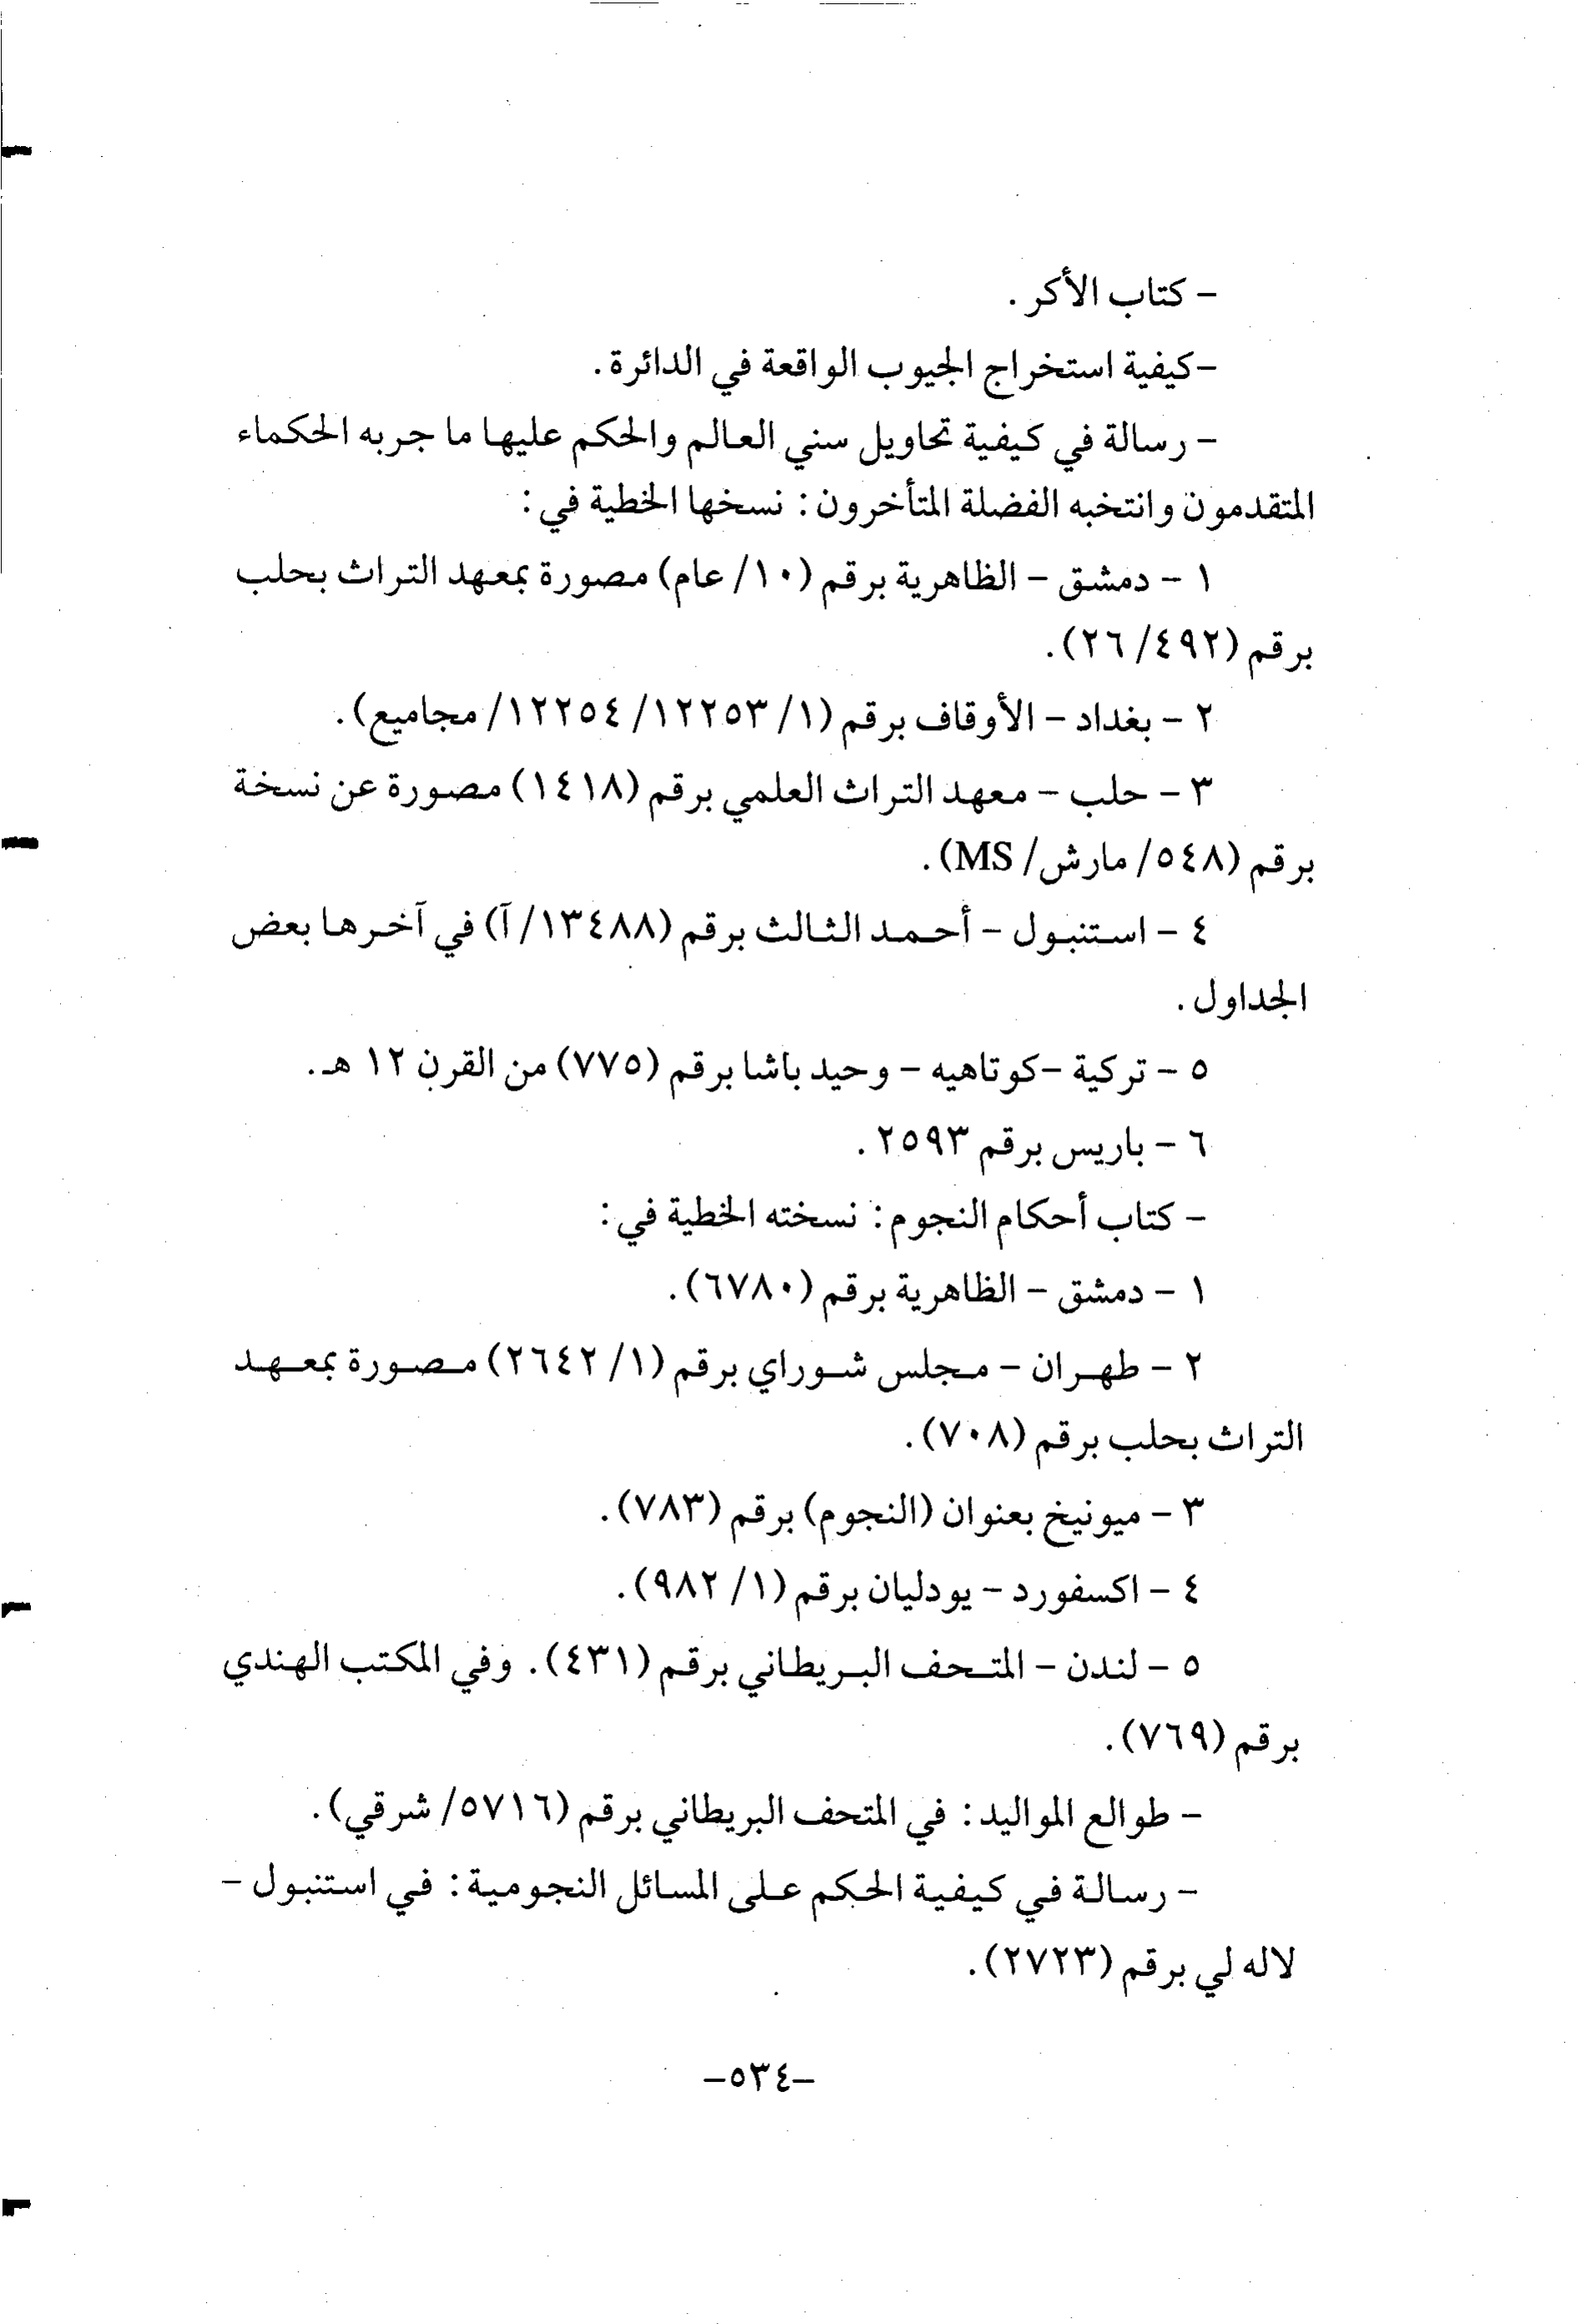 - كتاب الأكر .
-كيفية استخراج الجيوب الواقعة في الدائرة .
- رسالة في كيفية تحاويل سني العالم والحكم عليها ما جربه الحكماء
المتقدمون وانتخبه الفضلة المتأخرون : نسخها الخطية في :
١ - دمشق - الظاهرية برقم (١٠/ عام) مصورة بمعهد التراث بحلب
برقم (٤٩٢/ ٢٦).
٢ - بغداد - الأوقاف برقم (١/ ١٢٢٥٣/ ١٢٢٥٤/ مجاميع).
٣ - حلب - معهد التراث العلمي برقم (١٤١٨) مصورة عن نسخة
برقم (٥٤٨/ مارش/ MS).
٤ - استنبول - أحمد الثالث برقم (١٣٤٨٨/ آ) في آخرها بعض
الجداول .
٥ - تركية -كوتاهيه - وحيد باشا برقم (٧٧٥) من القرن ١٢ هـ.
٦ - باريس برقم ٢٥٩٣ .
- كتاب أحكام النجوم : نسخته الخطية في :
١ - دمشق - الظاهرية برقم (٦٧٨٠).
٢ - طهران - مجلس شوراي برقم (١/ ٢٦٤٢) مصورة بمعهد
التراث بحلب برقم (٧٠٨).
٣ - ميونيخ بعنوان (النجوم) برقم (٧٨٣).
٤ - اكسفورد - يودليان برقم (١/ ٩٨٢).
٥ - لندن - المتحف البريطاني برقم (٤٣١). وفي المكتب الهندي
برقم (٧٦٩).
- طوالع المواليد : في المتحف البريطاني برقم (٥٧١٦/ شرقي).
- رسالة في كيفية الحكم على المسائل النجومية : في استنبول -
لاله لي برقم (٢٧٢٣).
-٥٣٤-